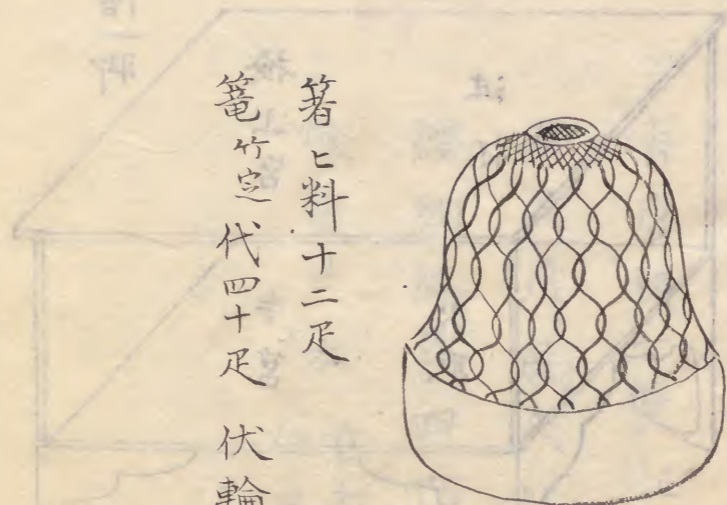 箸ヒ料十二疋
篭竹定代四十疋 伏輪